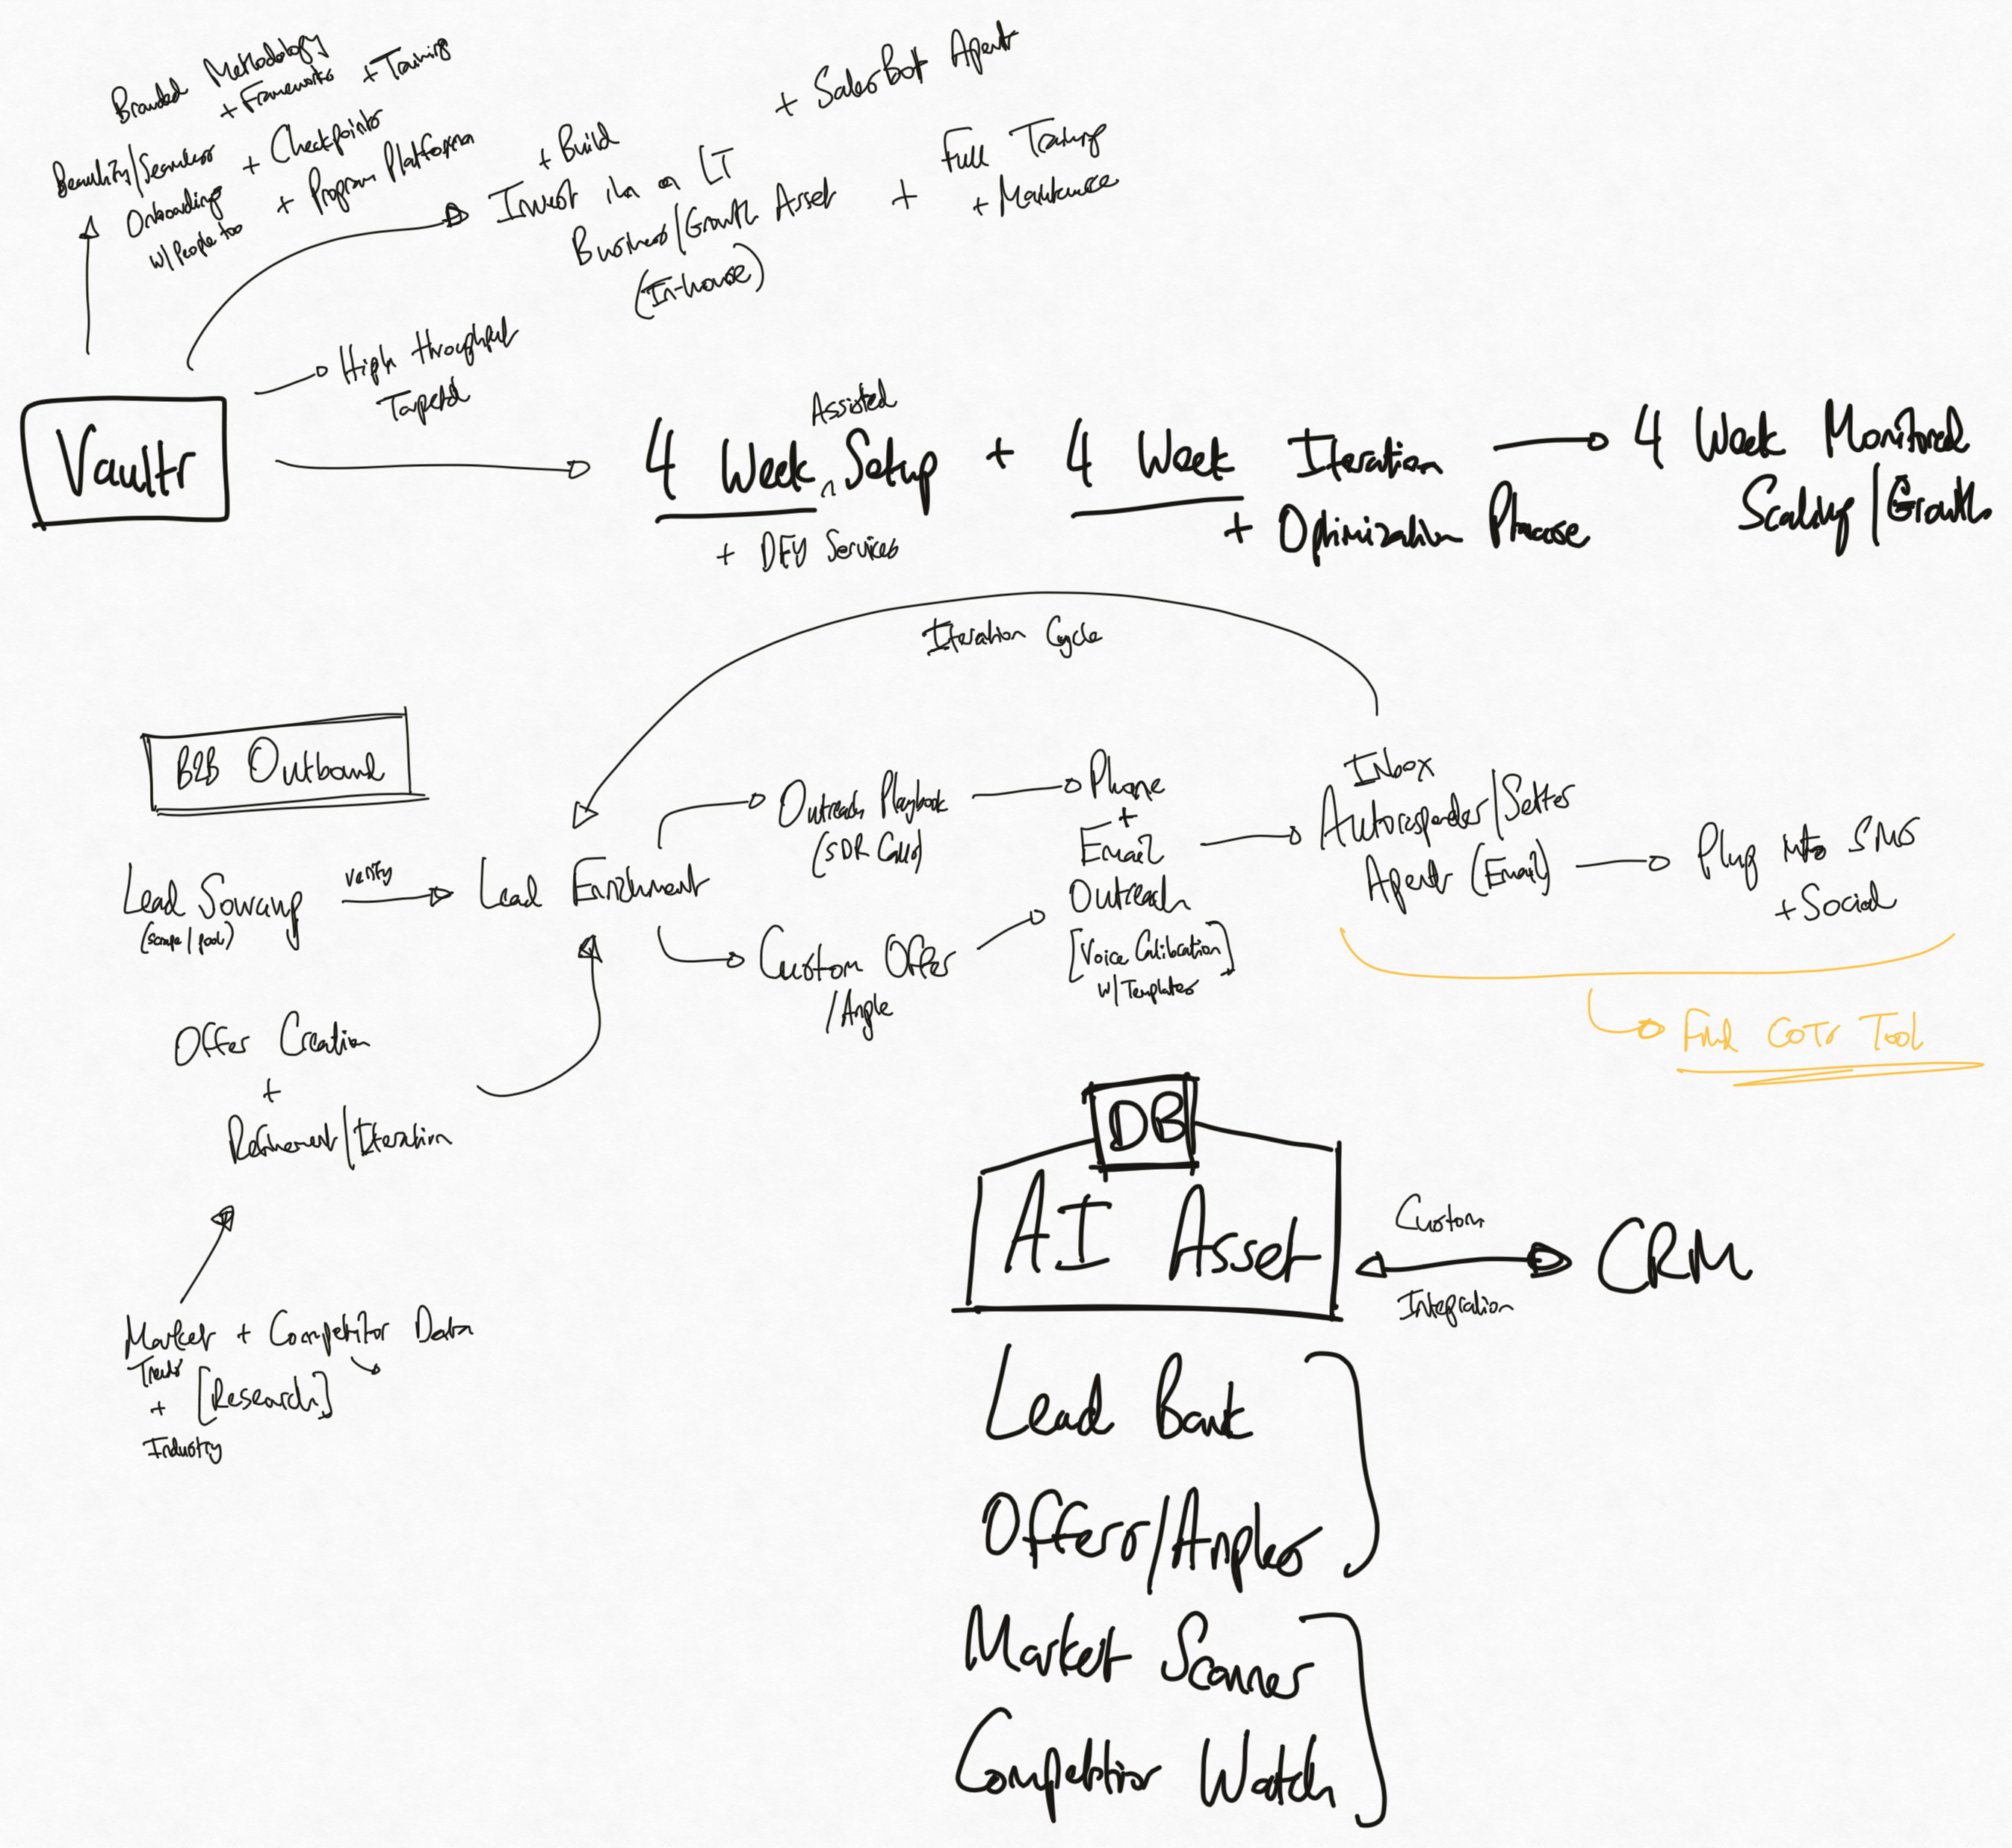 Branded Methodology
+ Frameworks
+ Training
/Seamless
Onboarding
w/ People too
+ Checkpoints
+ Program Platform
+ Build
Invest in a LT
Business/Growth Asset
(In-house)
+ SalesBot Agent
+ Full Training
+ Maintenance
High throughput
Targeted
Vaultr
Assisted
4 Week ^ Setup + 4 Week Iteration
+ DFY Services
+ Optimization Phase
4 Week Monitored
Scaling/Growth
Iteration Cycle
B2B Outbound
Lead Sourcing
(scrape/pool)
verify
Lead Enrichment
Outreach Playbook
(SDR Calls)
Custom Offer
/Angle
Phone
+
Email
Outreach
[Voice Calibration]
w/ Templates
Inbox
Autoresponder/Setter
Agent (Email)
Plug into SMS
+ Social
Find COTS Tool
Offer Creation
+
Refinement/Iteration
Market + Competitor Data
Trends
+ [Research]
Industry
DB
AI Asset
Custom
Integration
CRM
Lead Bank
Offers/Angles
Market Scanner
Competitor Watch